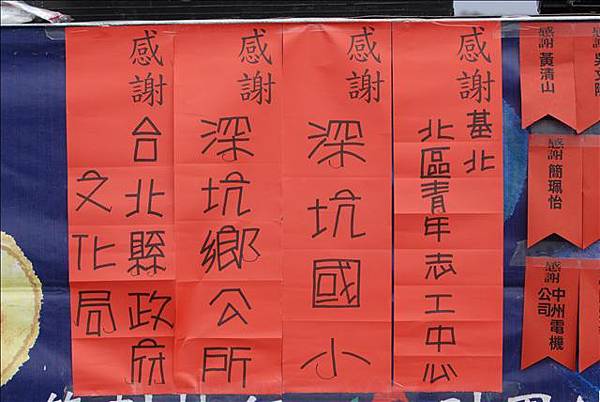 感謝黃清山
感謝簡珮怡
感謝中州電機
公司
感謝基北
北區青年志工中心
感謝
深坑國小
感謝
深坑鄉公所
感謝
台北縣政府
文化局